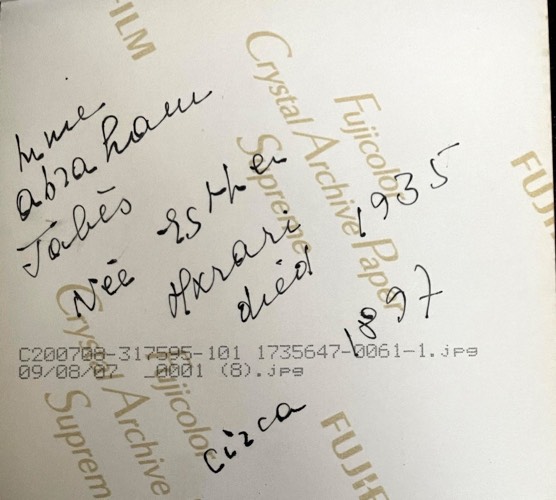 FILM
Crystal Archive Paper
Fujicolor
Supreme
FUJI
Mme
abraham
Tabès
Née Esther
Harari
died 1935
1897
C200708-317595-101 1735647-0061-1.jpg
09/08/07 _0001 (8).jpg
circa
Crystal Archive
Fujicolor
Suprem
FUJI